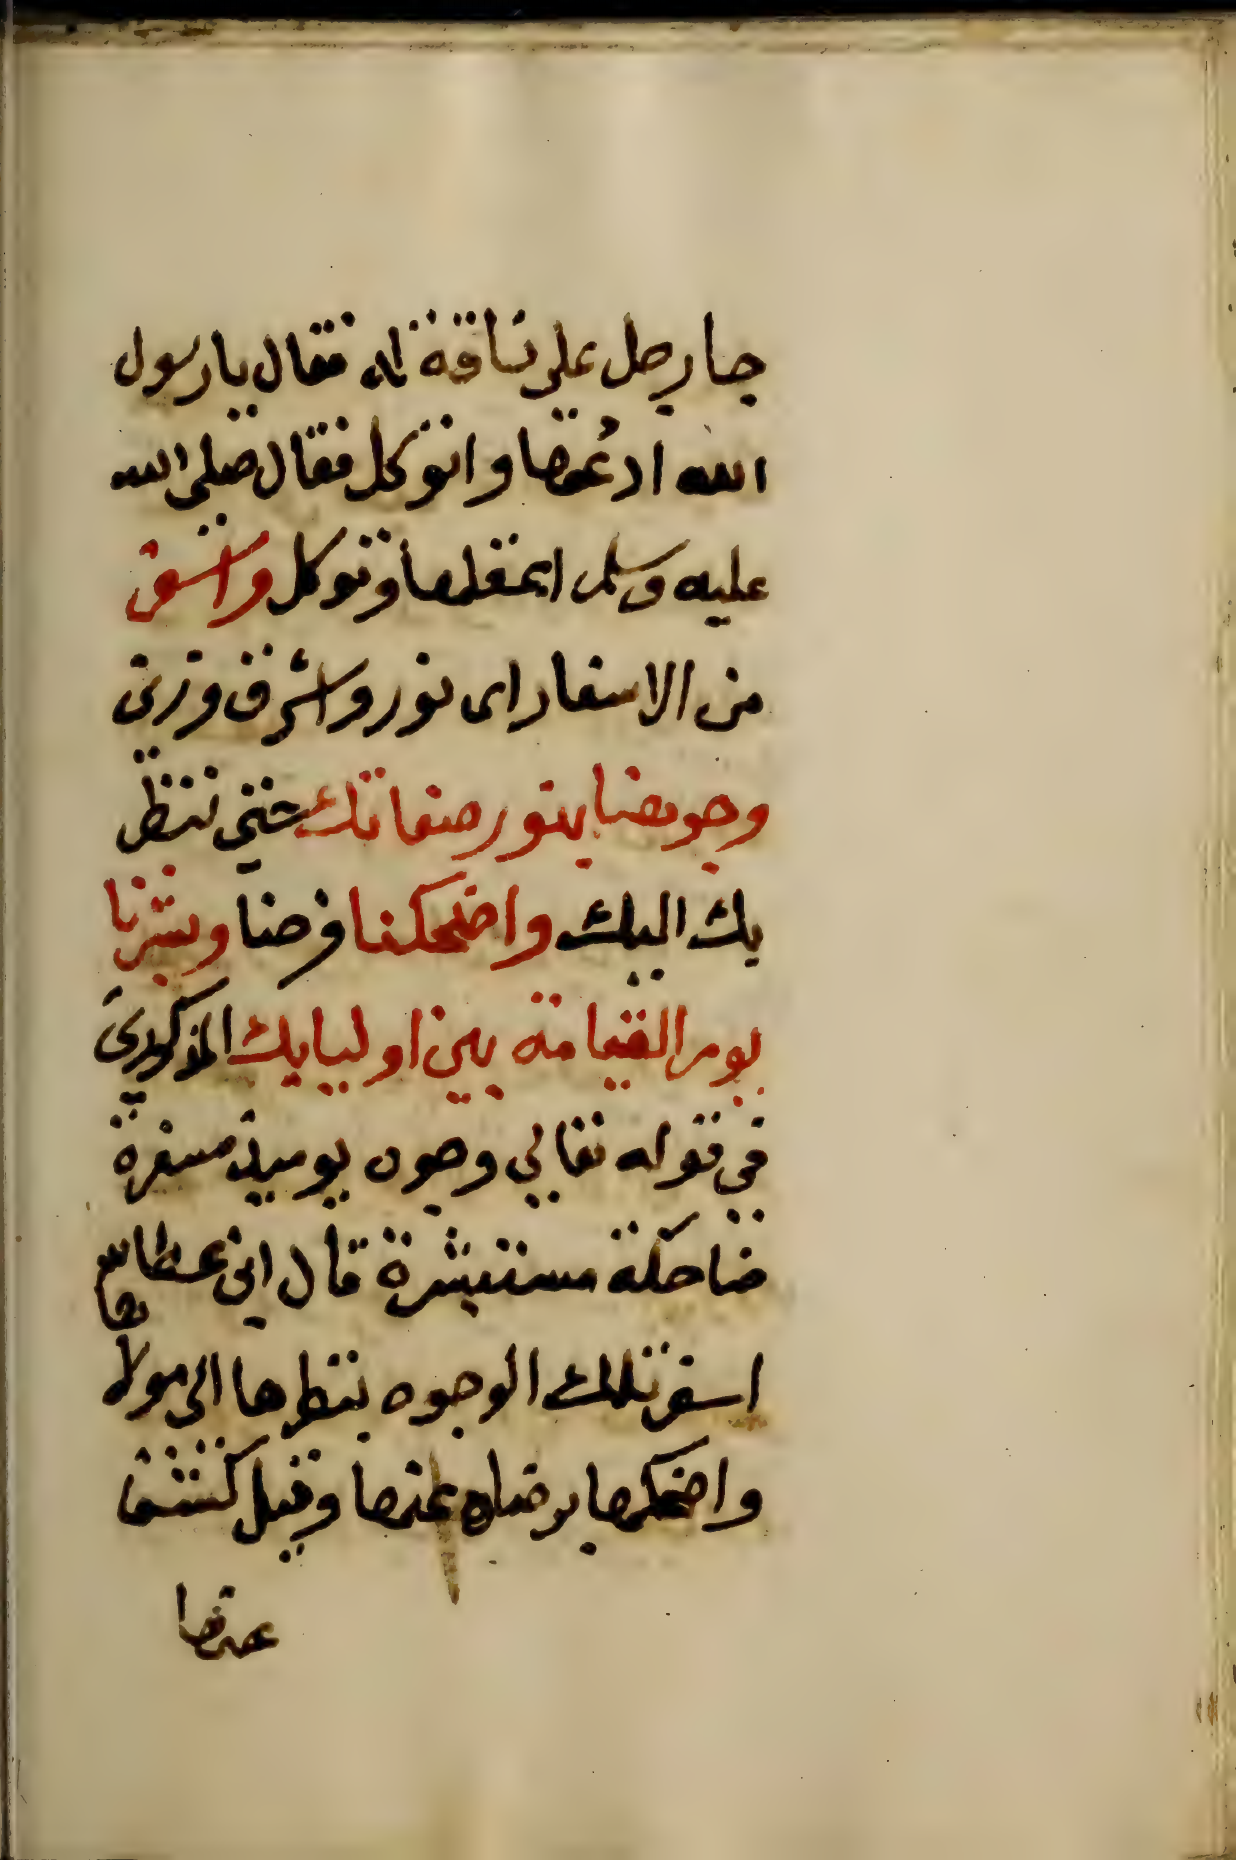 جا رجل علي ناقة له فقال يا رسول
الله ادعها واتوكل فقال صلي الله
عليه وسلم اعقلها وتوكل واسفر
من الاسفار اي نور واشرق وزين
وجوهنا بنور صفاتك حتي ننظر
بك اليك واضحكنا فرحا وبشرنا
يوم القيامة بين اوليايك المذكورين
في قوله تعالي وجوه يوميذ مسفرة
ضاحكة مستبشرة قال ابن عطا
اسفر تلك الوجوه بنظرها الي مولاها
واضحكها برضاه عنها وقيل كشف
عنها